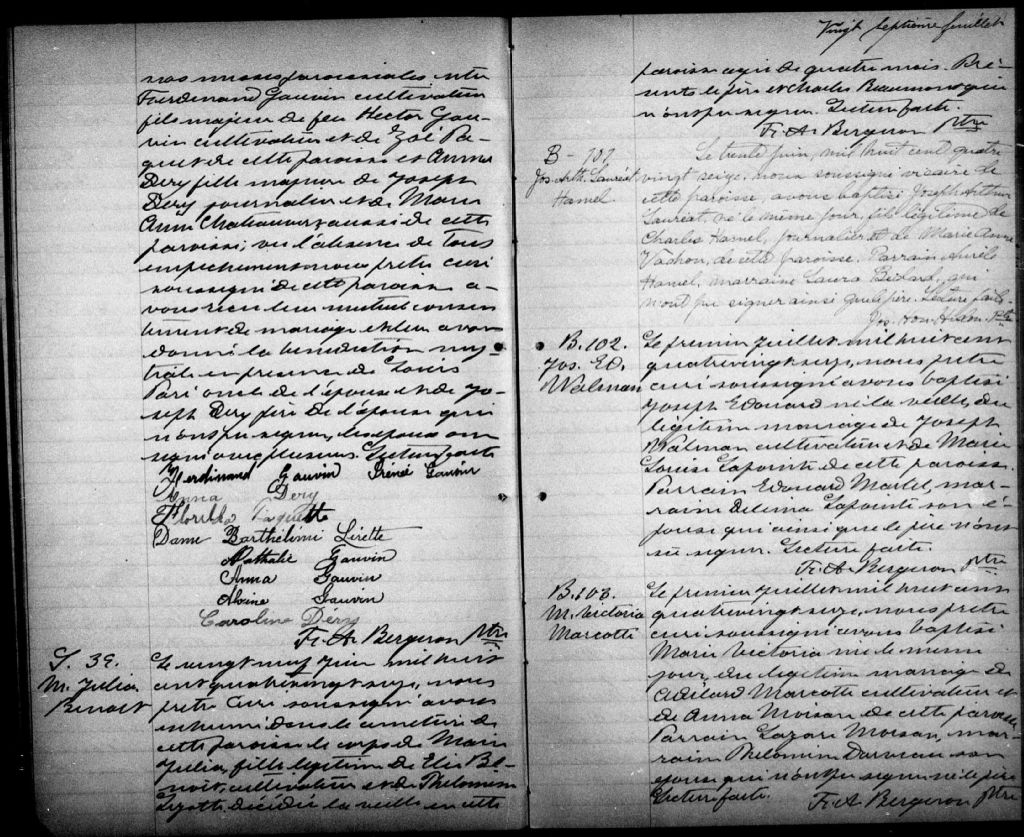 nos messes paroissiales entre
Ferdinand Gauvin cultivateur
fils majeur de feu Hector Gau-
vin cultivateur et de Zoé Pa-
quet de cette paroisse et Anna
Dery fille majeure de Joseph
Dery journalier et de Marie
Ann Chateauvert aussi de cette
paroisse; vu l'absence de tous
empechements nous pretre curé
soussigné de cette paroisse a-
vons reçu leur mutuel consen-
tement de mariage et leur avons
donné la benediction nup-
tiale en presence de Louis
Paré oncle de l'épouse et de Jo-
seph Dery père de l'épouse qui
n'ont pu signer, les époux ont
signé avec plusieurs. Lecture faite
Ferdinand Gauvin Iréné Gauvin
Anna Dery
Florilda Paquette
Dame Barthélimi Lirette
Nathalie Gauvin
Anna Gauvin
Alvine Gauvin
Caroline Déry
Fr. A. Bergeron Ptre
S. 39.
M. Julia
Benoit
Le vingt neuf Juin mil huit
cent quatrevingt seize, nous
pretre Curé soussigné avons
inhumé dans le cimetière de
cette paroisse le corps de Marie
Julia, fille legitime de Elie Be-
noit, cultivateur et de Philomène
Lizotte décédée la veille en cette
Vingt septième feuillet
paroisse agée de quatre mois. Pré-
sents le père et Charles Beaumont qui
n'ont pu signer. Lecture faite.
Fr. A. Bergeron Ptre
B - 101
Jos. Arth. Lauréat
Hamel
Le trente juin, mil huit cent quatre
vingt seize, nous soussigné vicaire de
cette paroisse, avons baptisé Joseph Arthur
Lauréat, né le même jour, fils légitime de
Charles Hamel, journalier et de Marie Anne
Vachon, de cette paroisse. Parrain Aurèle
Hamel, marraine Laura Bédard, qui
n'ont pu signer ainsi que le père. Lecture faite.
B. 102.
Jos. Ed.
Walman
Le premier Juillet mil huit cent
quatrevingt seize, nous pretre
curé soussigné avons baptisé
Joseph Edouard né la veille, du
legitime mariage de Joseph
Walman cultivateur et de Marie
Louise Lapointe de cette paroisse.
Parrain Edouard Martel, mar-
raine Delima Lapointe son é-
pouse qui ainsi que le père n'ont
su signer. Lecture faite.
Fr. A. Bergeron Ptre
B. 103.
M. Victoria
Marcotte
Le premier Juillet mil huit cent
quatrevingt seize, nous pretre
curé soussigné avons baptisé
Marie Victoria née le meme
jour, du legitime mariage de
Adélard Marcotte cultivateur et
de Anna Moisan de cette paroisse
Parrain Lazare Moisan, mar-
raine Philomène Darveau son
épouse qui n'ont pu signer ni le père
Lecture faite.
Fr. A Bergeron Ptre